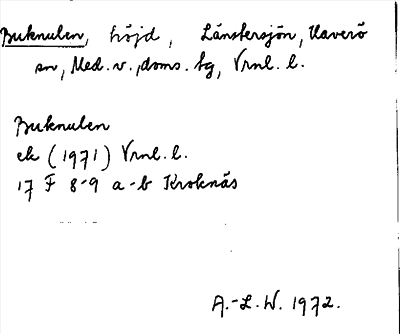 Buknulen, höjd, Länstersjön, Haverö
sn, Med. v., doms. tg, Vrnl. l.
Buknulen
ek (1971) Vrnl. l.
17 F 8-9 a-b Kroknäs
A.-L.W. 1972.